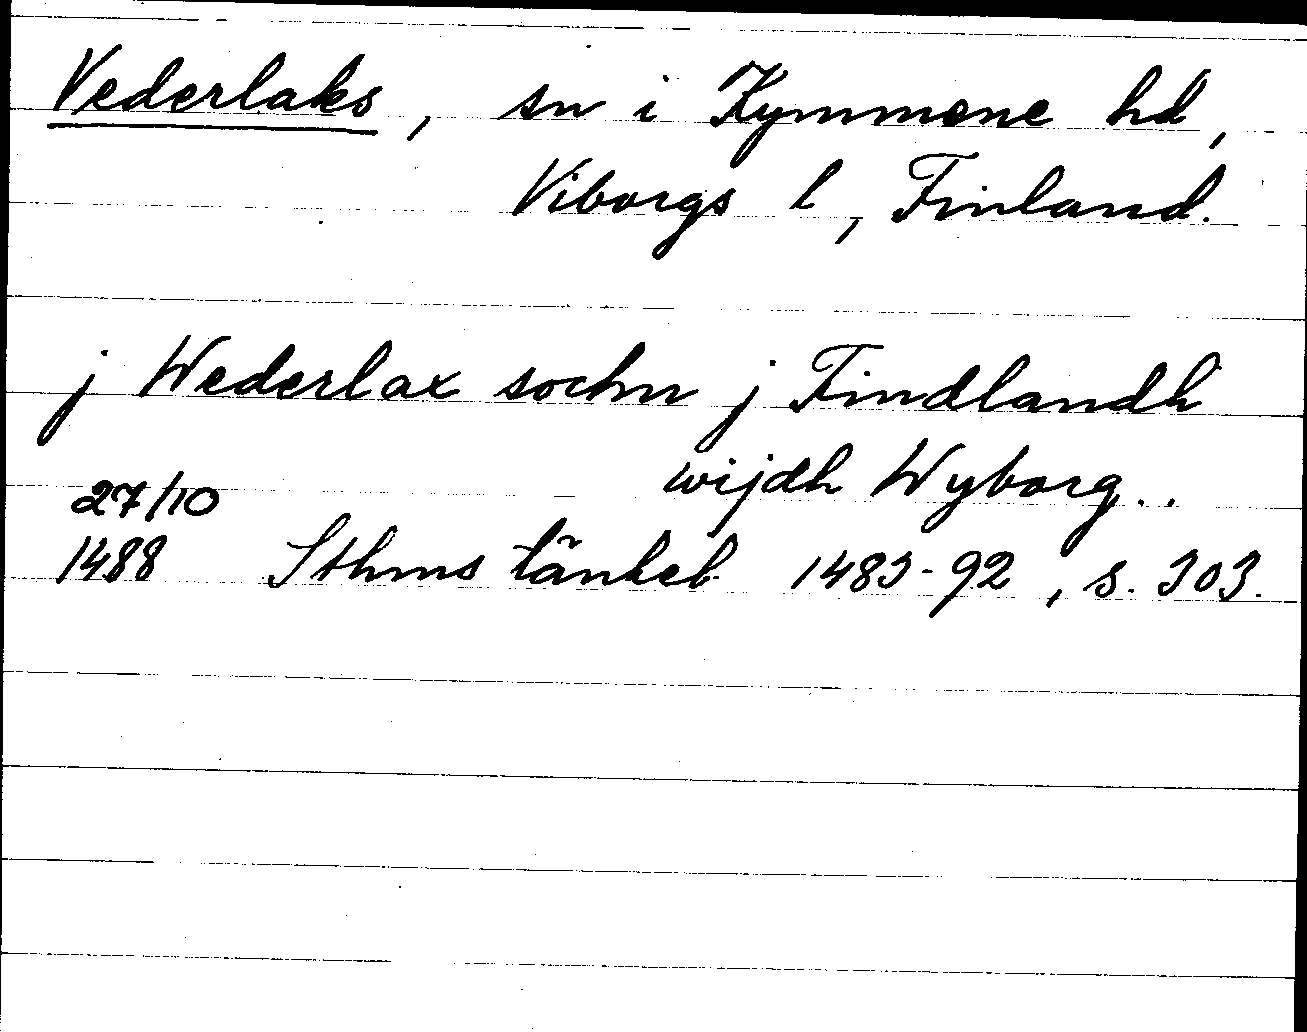 Vederlaks, sn i Kymmene hd,
Viborgs l, Finland.
j Wederlax sochn j Findlandh
wijdh Wyborg..
27/10
1488 Sthms tänkeb 1483-92, s. 303.